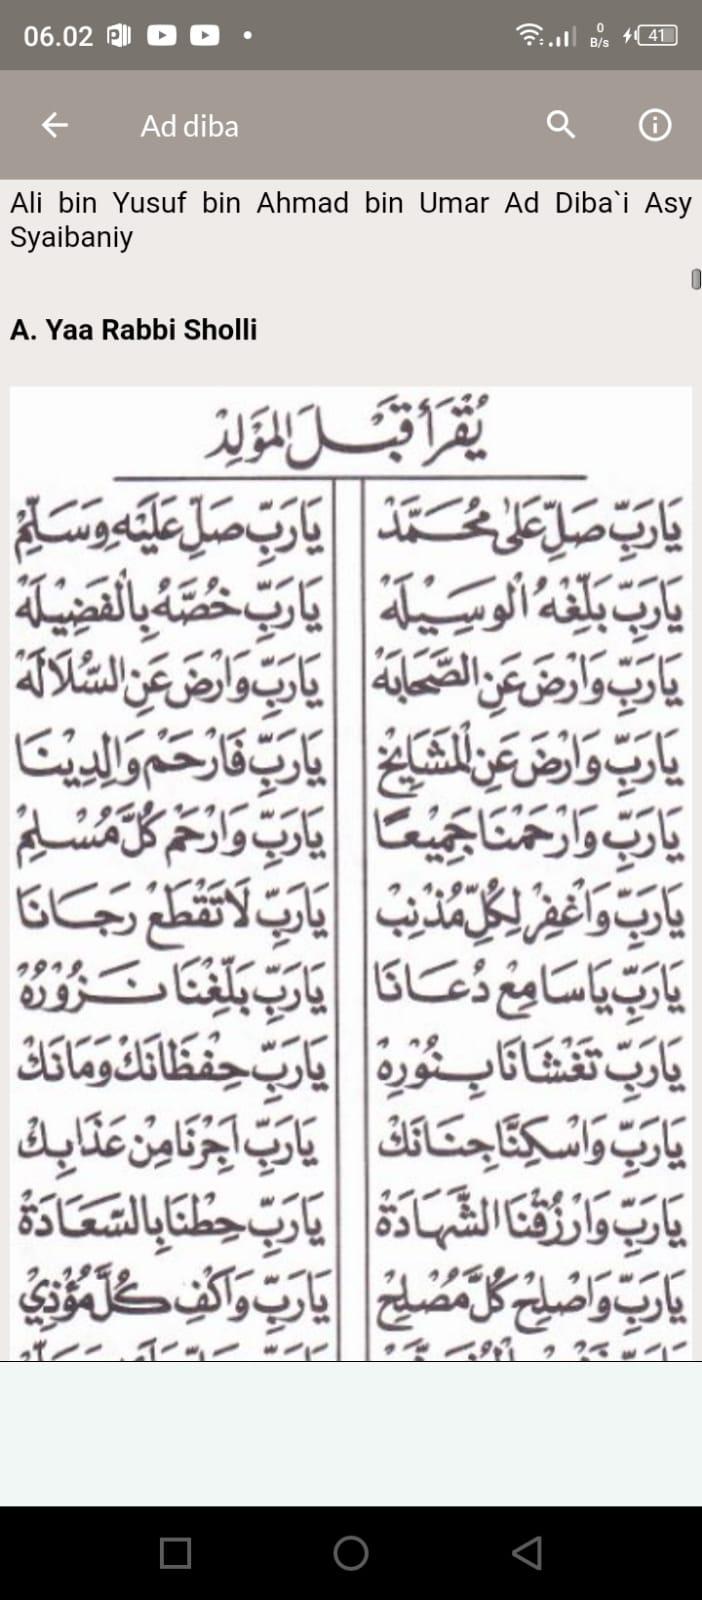 06.02
0 B/s
41
Ad diba
Ali bin Yusuf bin Ahmad bin Umar Ad Diba`i Asy
Syaibaniy
A. Yaa Rabbi Sholli
يُقْرَأُ قَبْلَ الْمَوْلِدْ
يَارَبِّ صَلِّ عَلىٰ مُحَمَّدْ يَارَبِّ صَلِّ عَلَيْهِ وَسَلِّمْ
يَارَبِّ بَلِّغْهُ الْوَسِيْلَهْ يَارَبِّ خُصَّهُ بِالْفَضِيْلَهْ
يَارَبِّ وَارْضَ عَنِ الصَّحَابَهْ يَارَبِّ وَارْضَ عَنِ السُّلَالَهْ
يَارَبِّ وَارْضَ عَنِ الْمَشَايِخْ يَارَبِّ فَارْحَمْ وَالِدِيْنَا
يَارَبِّ وَارْحَمْنَا جَمِيْعًا يَارَبِّ وَارْحَمْ كُلَّ مُسْلِمْ
يَارَبِّ وَاغْفِرْ لِكُلِّ مُذْنِبْ يَارَبِّ لَا تَقْطَعْ رَجَانَا
يَارَبِّ يَاسَامِعْ دُعَانَا يَارَبِّ بَلِّغْنَا نَزُوْرُهْ
يَارَبِّ تَغْشَانَا بِنُوْرِهْ يَارَبِّ حِفْظَانَكْ وَمَانَكْ
يَارَبِّ وَاسْكِنَّا جِنَانَكْ يَارَبِّ اَجِرْنَا مِنْ عَذَابِكْ
يَارَبِّ وَارْزُقْنَا الشَّهَادَةْ يَارَبِّ حِطْنَا بِالسَّعَادَةْ
يَارَبِّ وَاصْلِحْ كُلَّ مُصْلِحْ يَارَبِّ وَاكْفِ كُلَّ مُؤْذِيْ